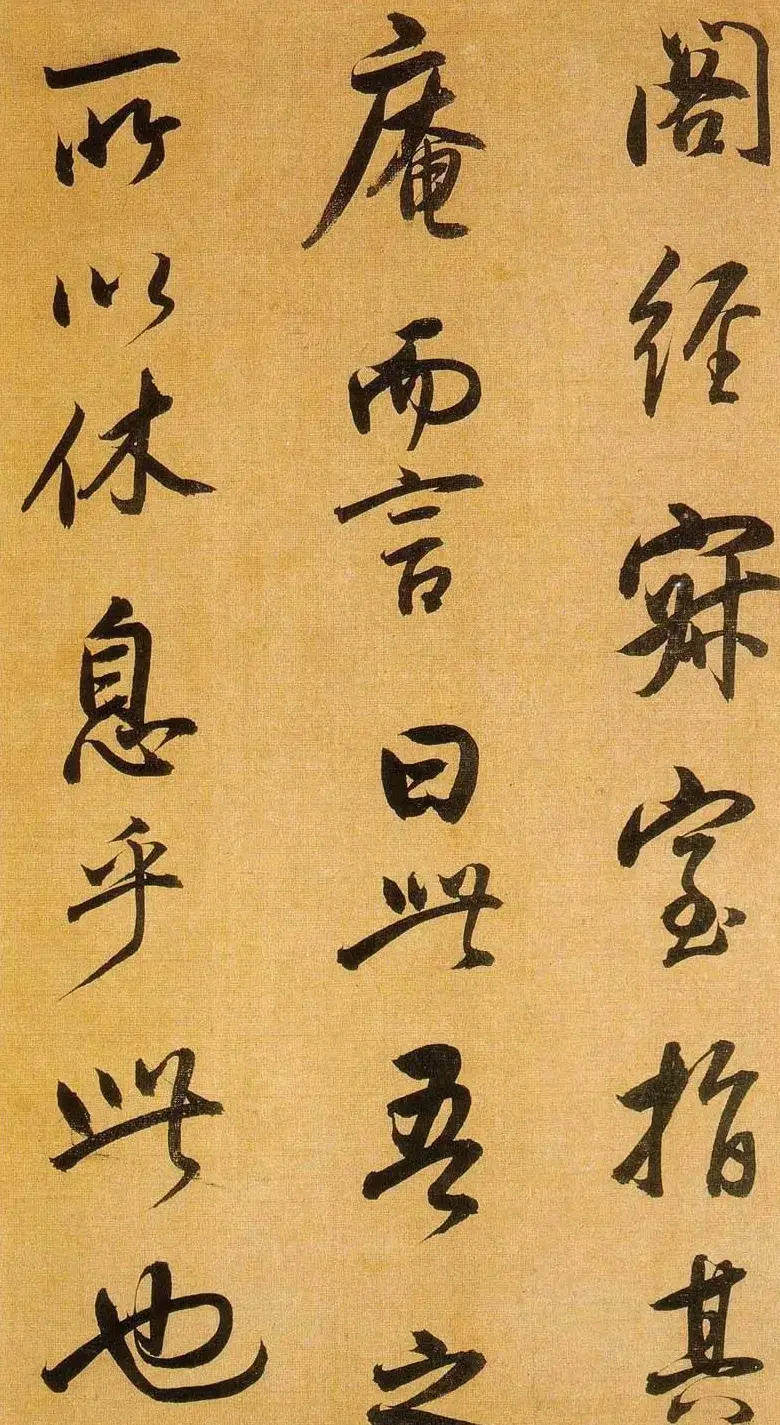 閣經寂室指其
庵而言曰此吾之
所以休息乎此也